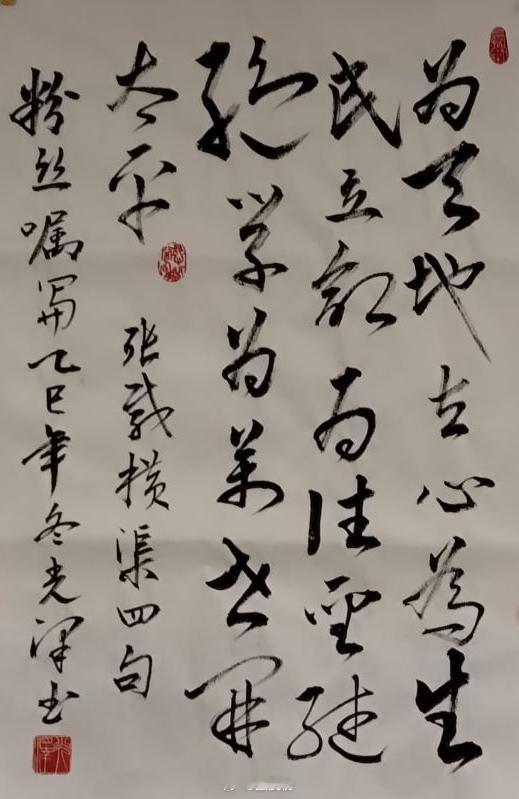 为天地立心為生
民立命为往聖继
绝学为萬世开
太平 张载横渠四句
粉丝嘱写乙巳年冬光泽书